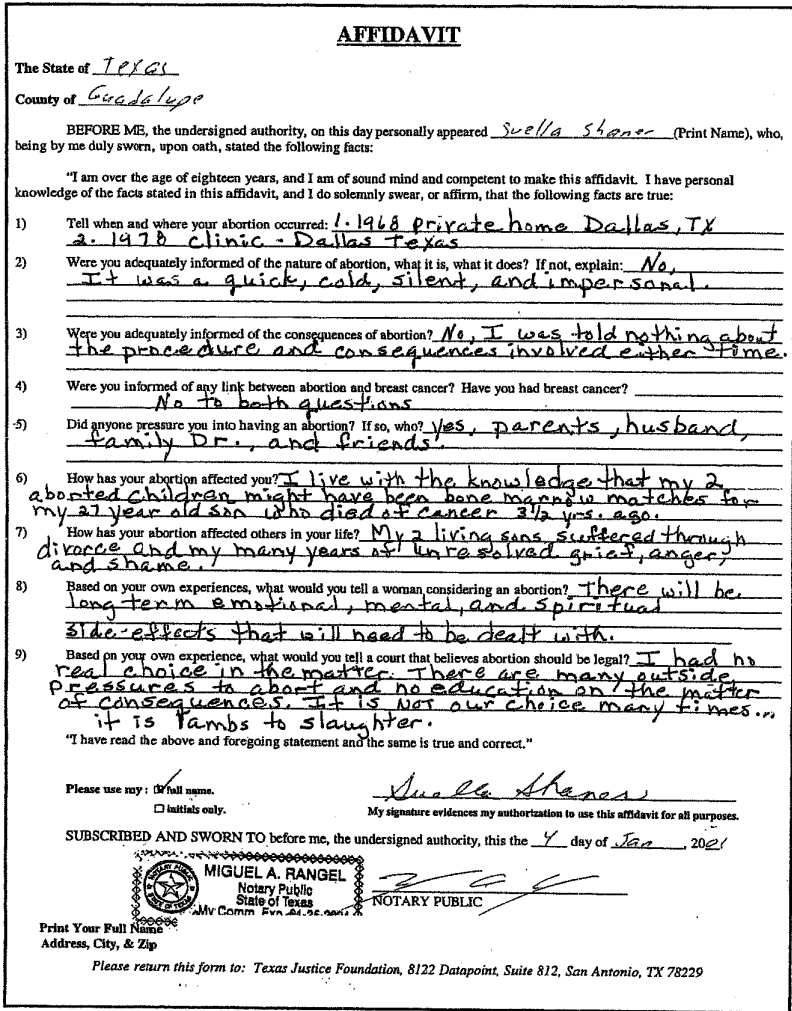 AFFIDAVIT
The State of Texas
County of Guadalupe
BEFORE ME, the undersigned authority, on this day personally appeared Suella Shaner (Print Name), who,
being by me duly sworn, upon oath, stated the following facts:
"I am over the age of eighteen years, and I am of sound mind and competent to make this affidavit. I have personal
knowledge of the facts stated in this affidavit, and I do solemnly swear, or affirm, that the following facts are true:
1) Tell when and where your abortion occurred: 1. 1968 private home Dallas, TX
2. 1978 clinic - Dallas Texas
2) Were you adequately informed of the nature of abortion, what it is, what it does? If not, explain: No,
It was a quick, cold, silent, and impersonal.
3) Were you adequately informed of the consequences of abortion? No, I was told nothing about
the procedure and consequences involved either time.
4) Were you informed of any link between abortion and breast cancer? Have you had breast cancer?
No to both questions
5) Did anyone pressure you into having an abortion? If so, who? Yes, parents, husband,
family Dr., and friends.
6) How has your abortion affected you? I live with the knowledge that my 2
aborted children might have been bone marrow matches for
my 27 year old son who died of cancer 3½ yrs. ago.
7) How has your abortion affected others in your life? My 2 living sons suffered through
divorce and my many years of unresolved grief, anger,
and shame.
8) Based on your own experiences, what would you tell a woman considering an abortion? There will be
long-term emotional, mental, and spiritual
side-effects that will need to be dealt with.
9) Based on your own experience, what would you tell a court that believes abortion should be legal? I had no
real choice in the matter. There are many outside
pressures to abort and no education on the matter
of consequences. It is NOT our choice many times...
it is lambs to slaughter.
"I have read the above and foregoing statement and the same is true and correct."
Please use my: full name.
initials only.
Suella Shaner
My signature evidences my authorization to use this affidavit for all purposes.
SUBSCRIBED AND SWORN TO before me, the undersigned authority, this the 4 day of Jan, 2001
NOTARY PUBLIC
STATE OF TEXAS
MIGUEL A. RANGEL
Notary Public
State of Texas
My Comm. Exp.
NOTARY PUBLIC
Print Your Full Name
Address, City, & Zip
Please return this form to: Texas Justice Foundation, 8122 Datapoint, Suite 812, San Antonio, TX 78229